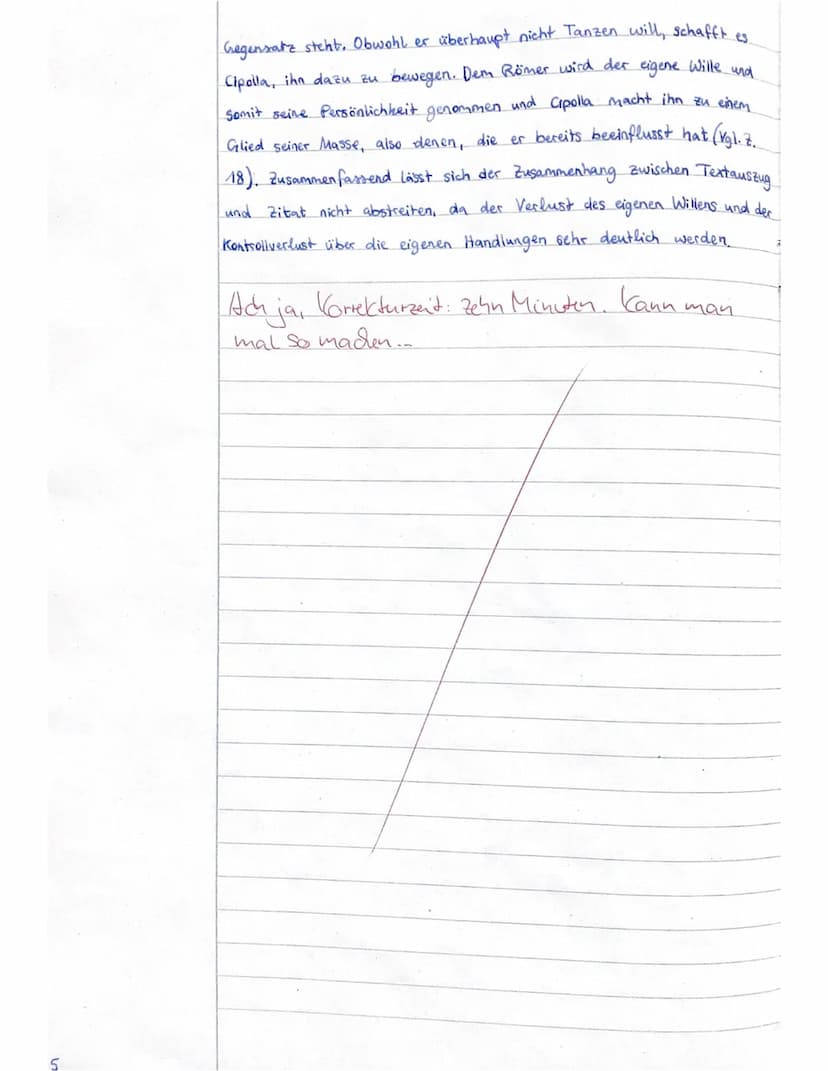 Gegensatz steht. Obwohl er überhaupt nicht Tanzen will, schafft es
Cipolla, ihn dazu zu bewegen. Dem Römer wird der eigene Wille und
somit seine Persönlichkeit genommen und Cipolla macht ihn zu einem
Glied seiner Masse, also denen, die er bereits beeinflusst hat (Vgl. Z.
18). Zusammenfassend lässt sich der Zusammenhang zwischen Textauszug
und Zitat nicht abstreiten, da der Verlust des eigenen Willens und der
Kontrollverlust über die eigenen Handlungen sehr deutlich werden.
Ach ja, Korrekturzeit: zehn Minuten. Kann man
mal so machen...
5